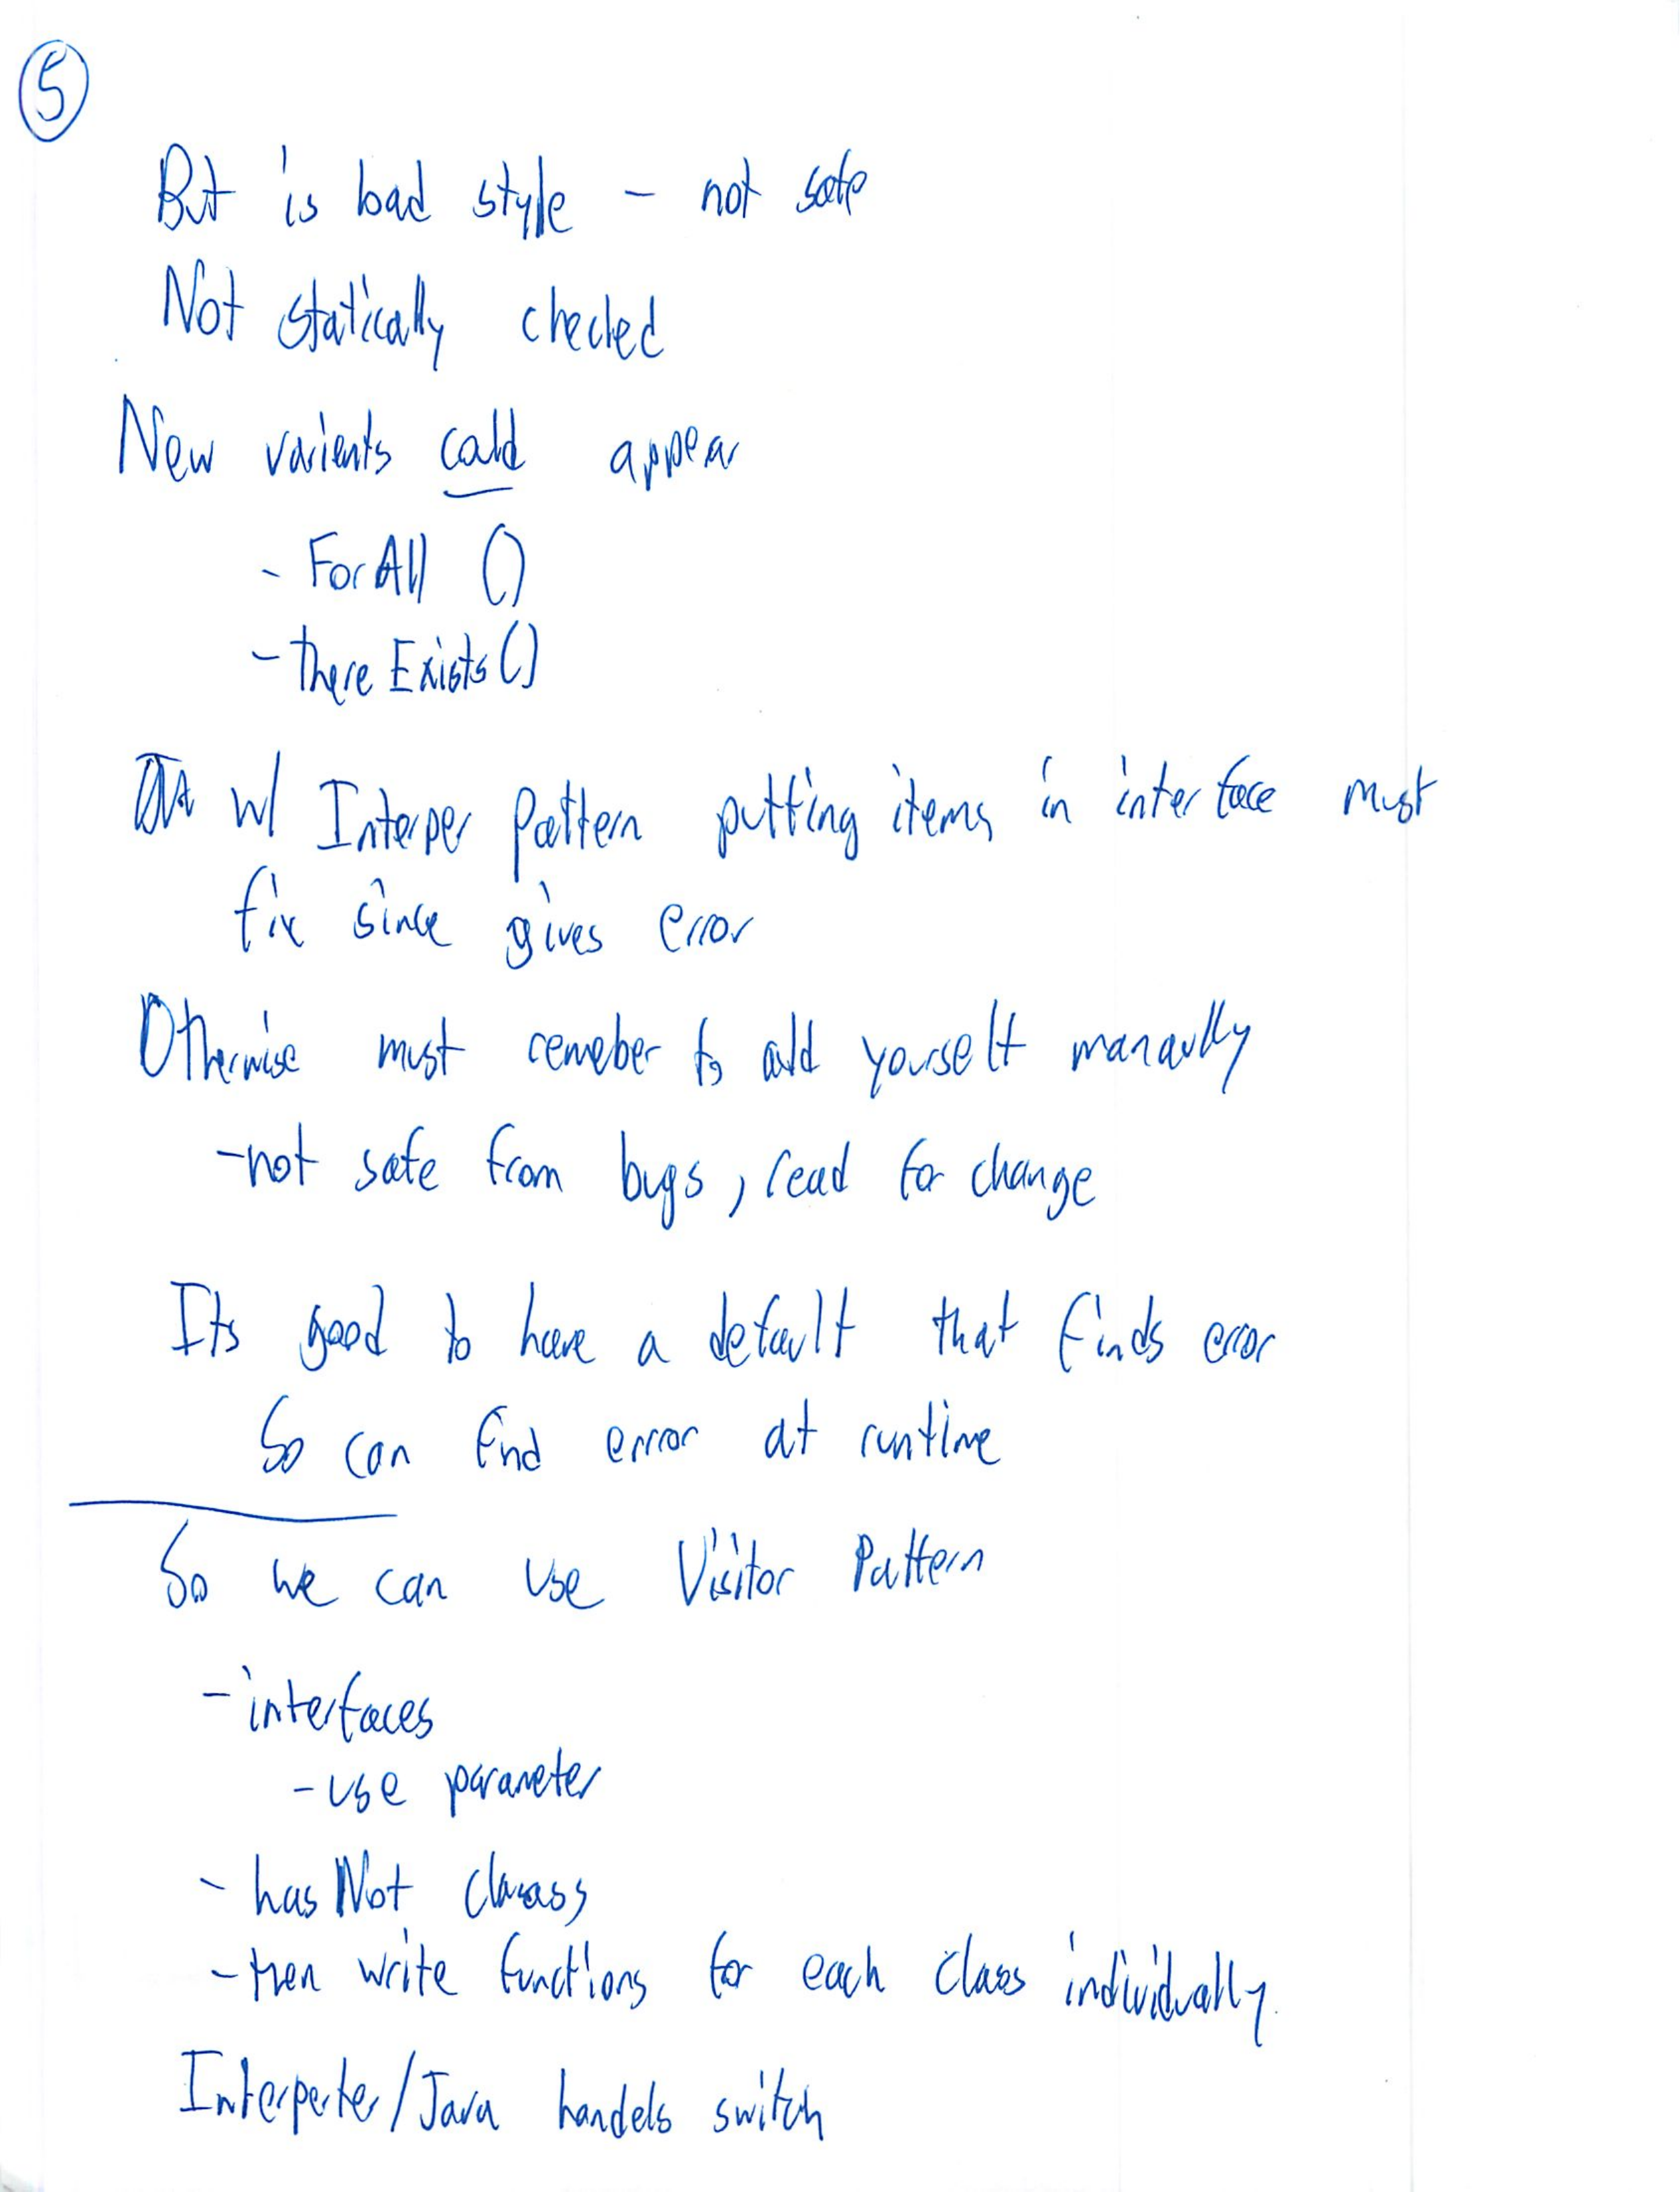 5
But is bad style - not safe
Not statically checked
New varients could appear
- ForAll ()
- There Exists()
w/ Interper Pattern putting items in interface must
fix since gives error
Otherwise must remeber to add yourself manaully
- not safe from bugs, read for change
Its good to have a default that finds error
So can find error at runtime
So we can use Visitor Pattern
- interfaces
- use parameter
- has Not
- then write functions for each class individually.
Interperter/Java handels switch